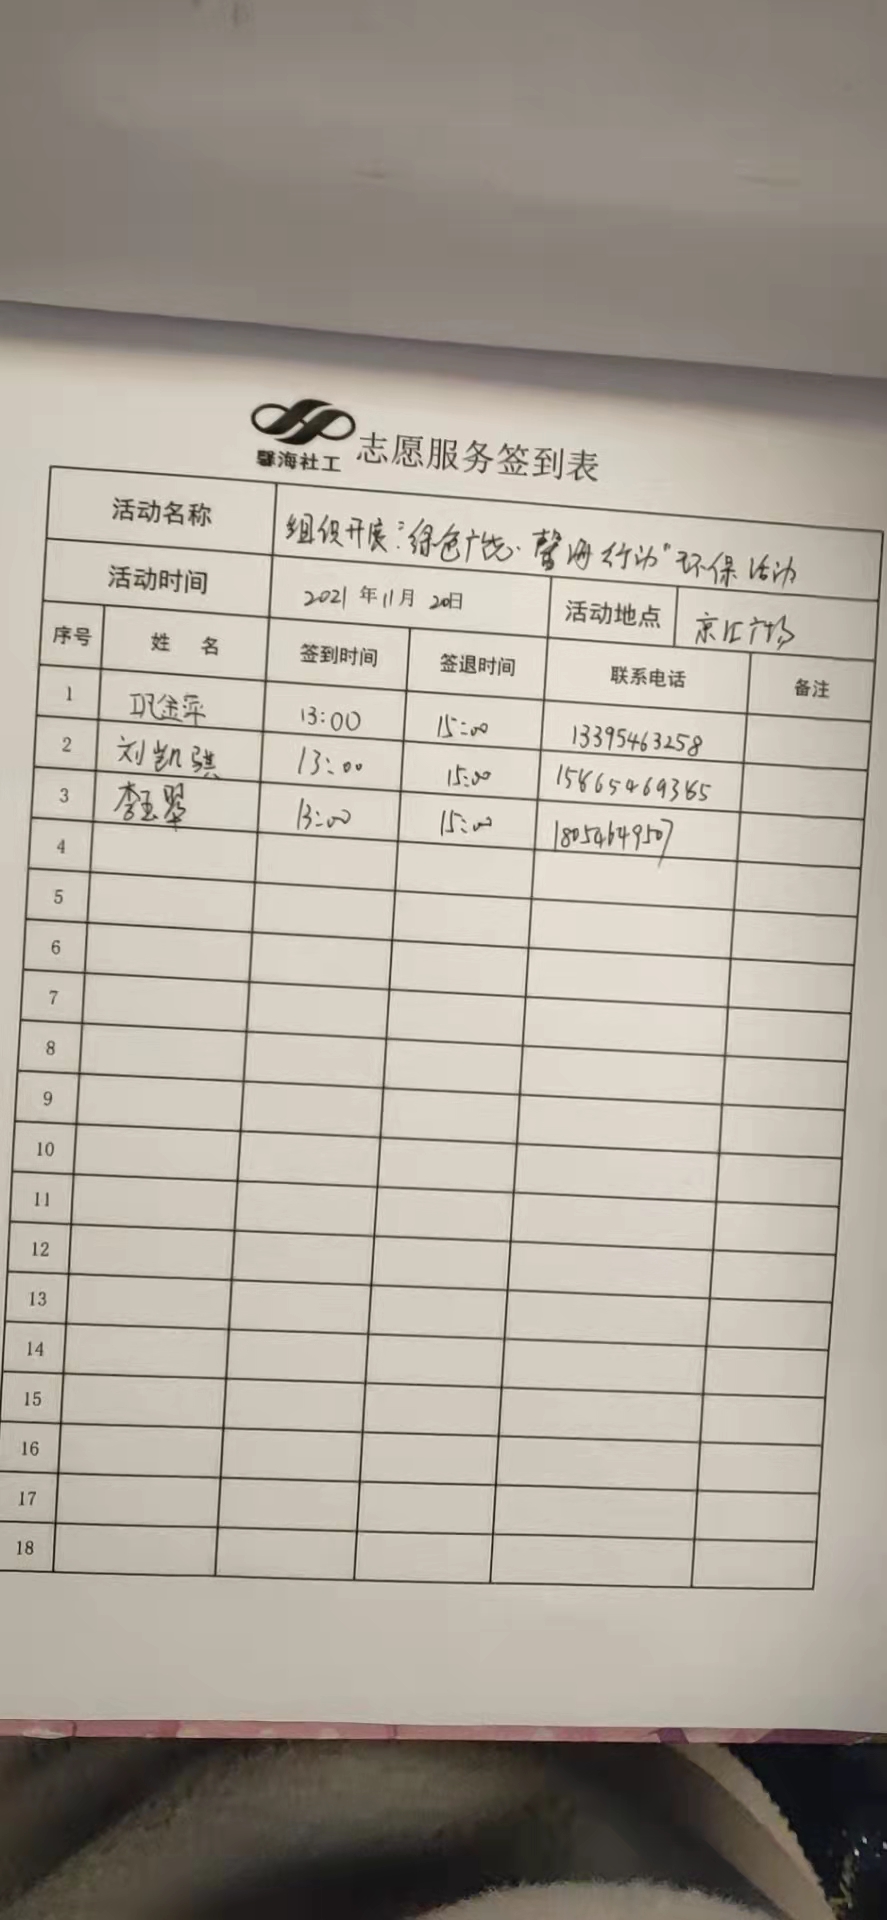 馨海社工 志愿服务签到表
活动名称 组织开展"绿色广饶·馨海行动"环保活动
活动时间 2021年11月20日 活动地点 京汇广场
序号 姓 名 签到时间 签退时间 联系电话 备注
1 巩金萍 13:00 15:00 13395463258
2 刘凯骐 13:00 15:00 15865469385
3 李玉翠 13:00 15:00 18054649507
4
5
6
7
8
9
10
11
12
13
14
15
16
17
18